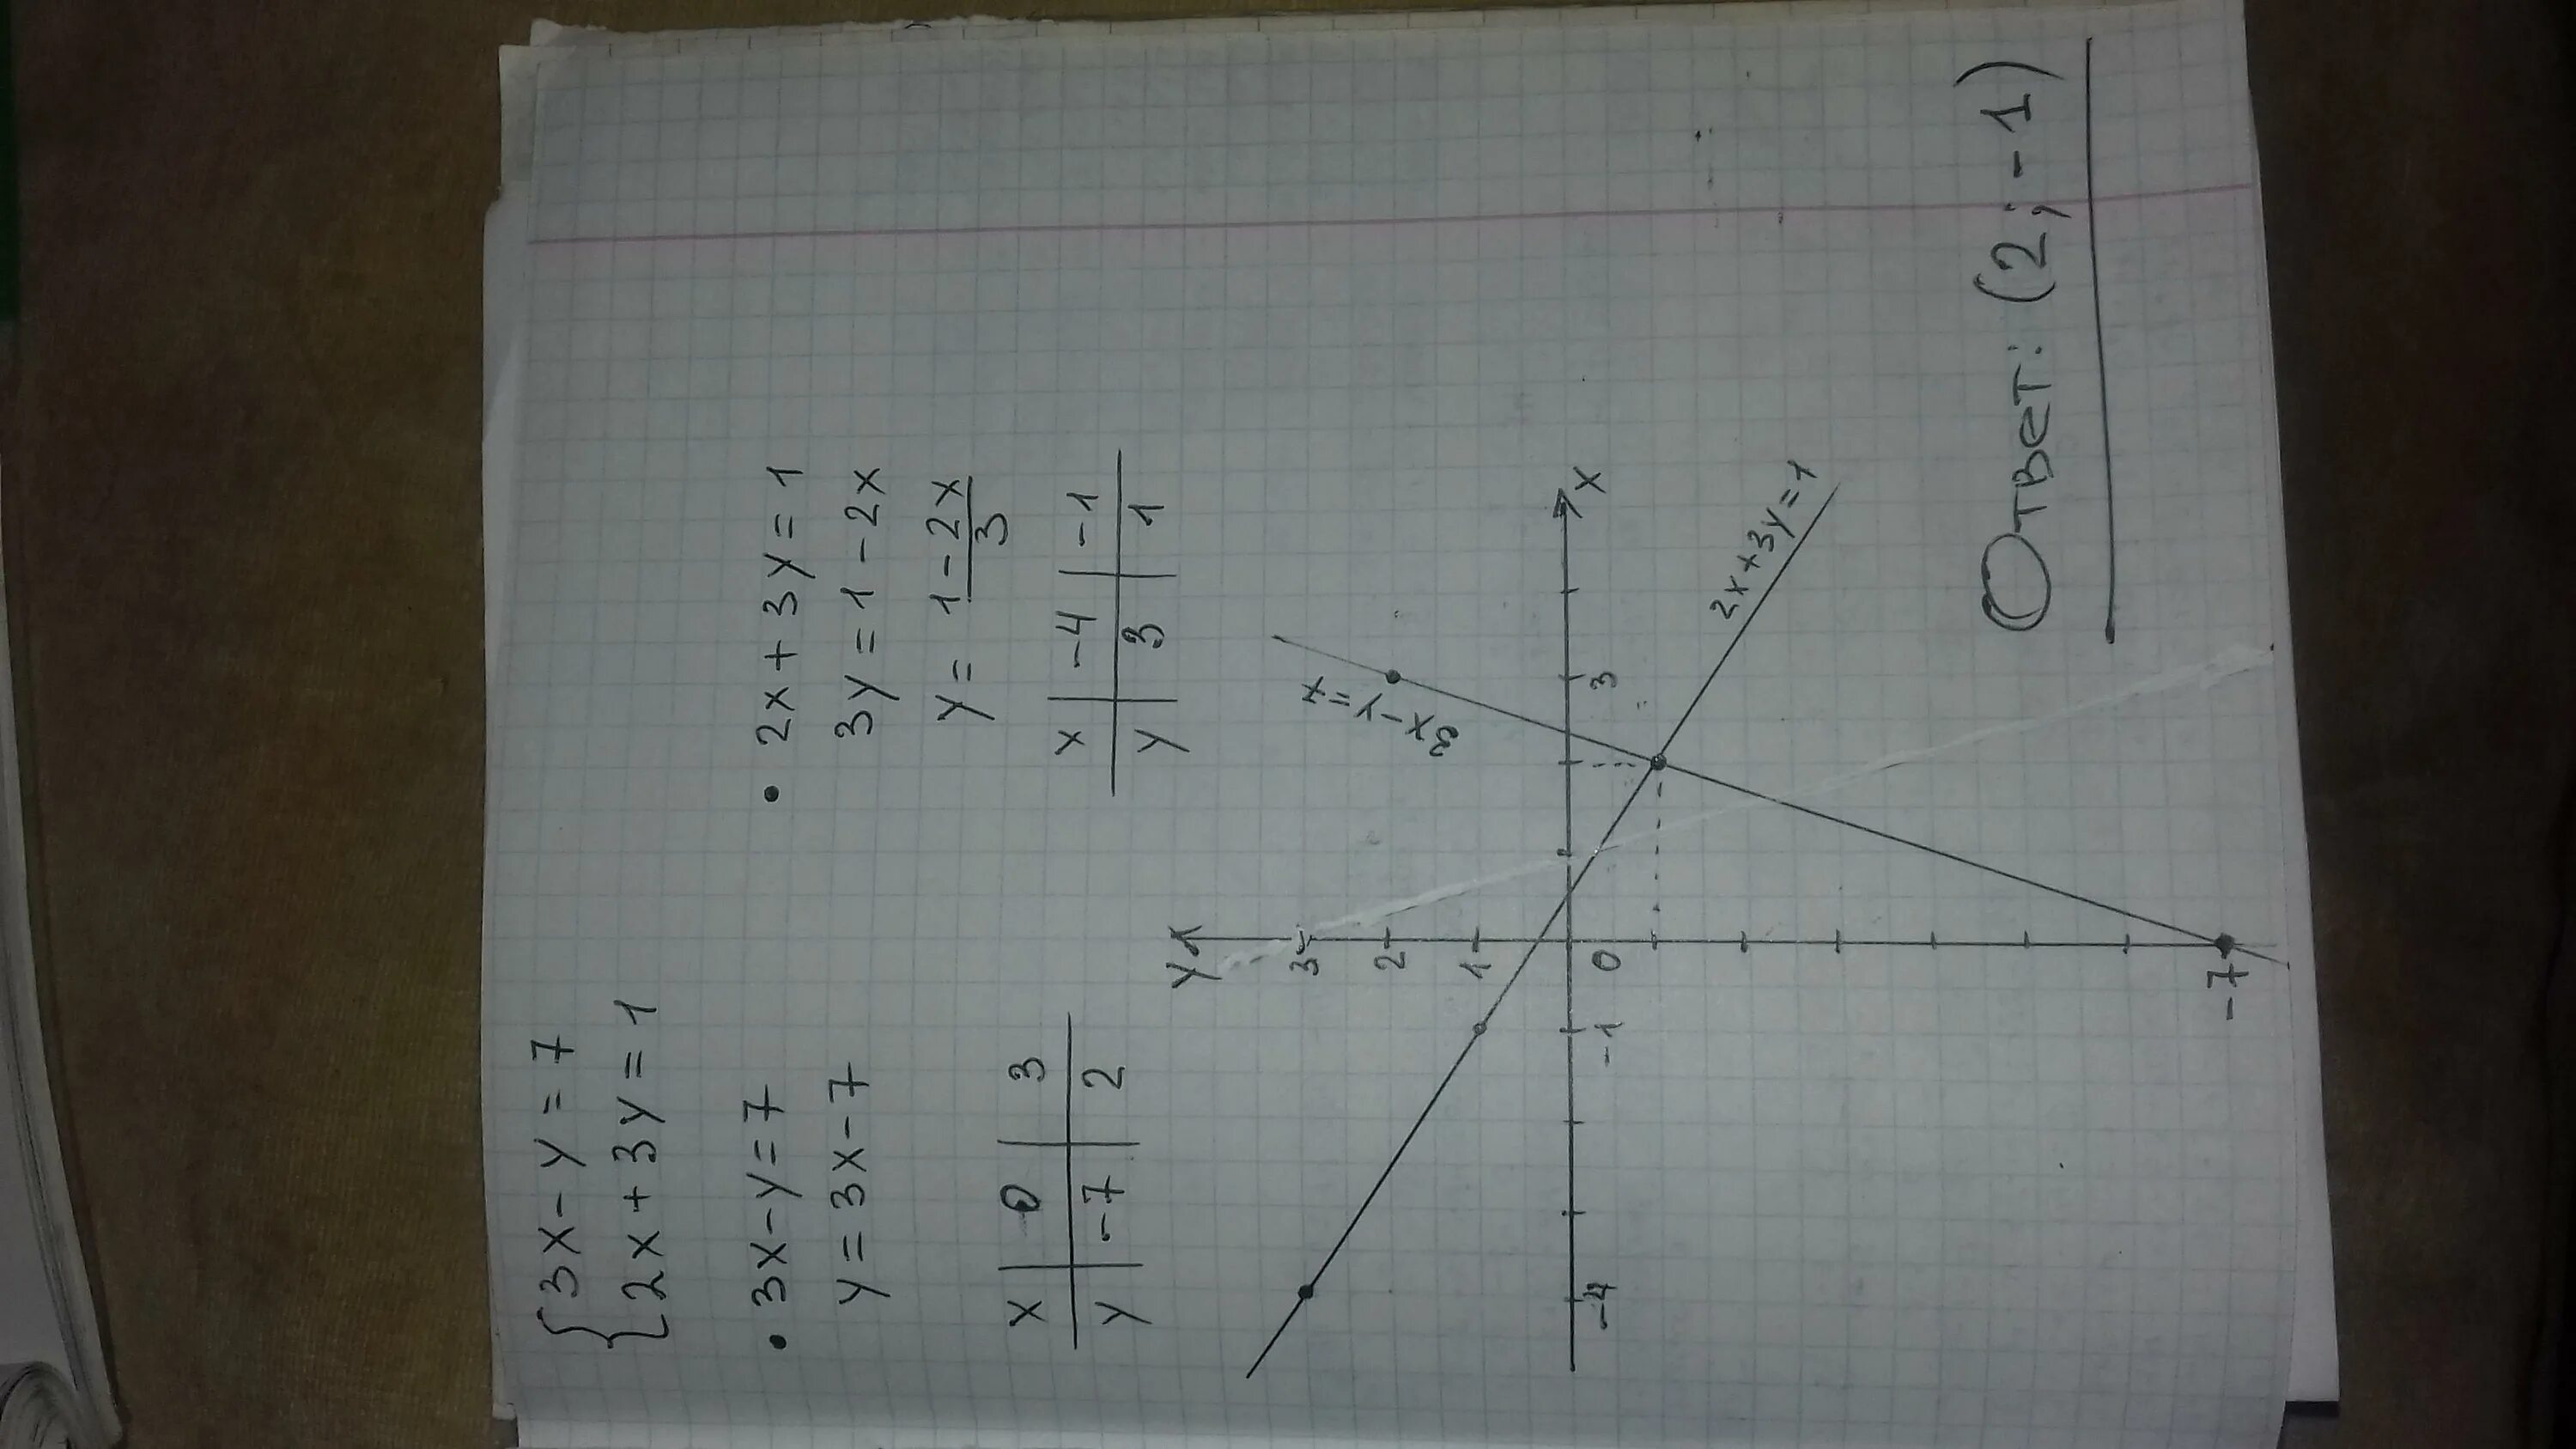 { 3x - y = 7
2x + 3y = 1
• 3x - y = 7
y = 3x - 7
x | 0 | 3
y | -7 | 2
• 2x + 3y = 1
3y = 1 - 2x
y = 1 - 2x / 3
x | -4 | -1
y | 3 | 1
y
3
2
1
0
-4
-1
3
x
-7
3x - y = 7
2x + 3y = 1
Ответ: (2; -1)